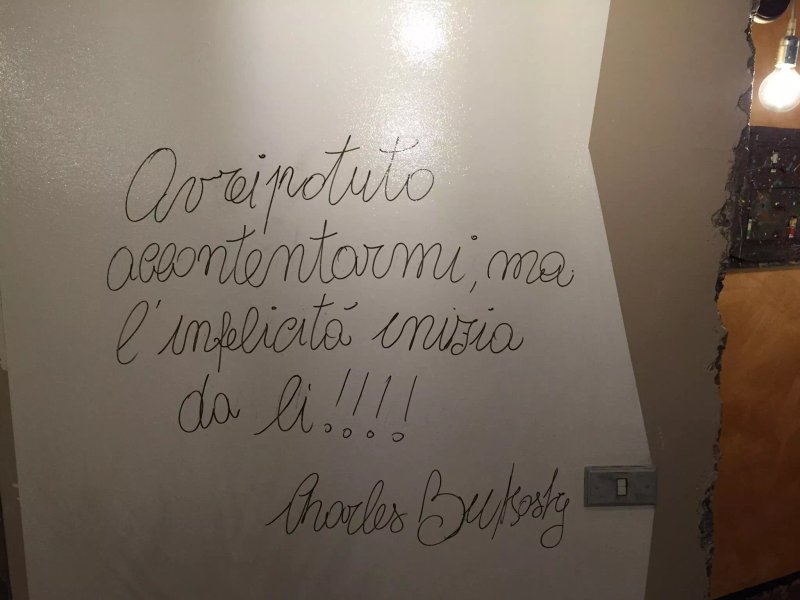 Avrei potuto
accontentarmi, ma
l'infelicitá inizia
da li!!!!
Charles Bukosky